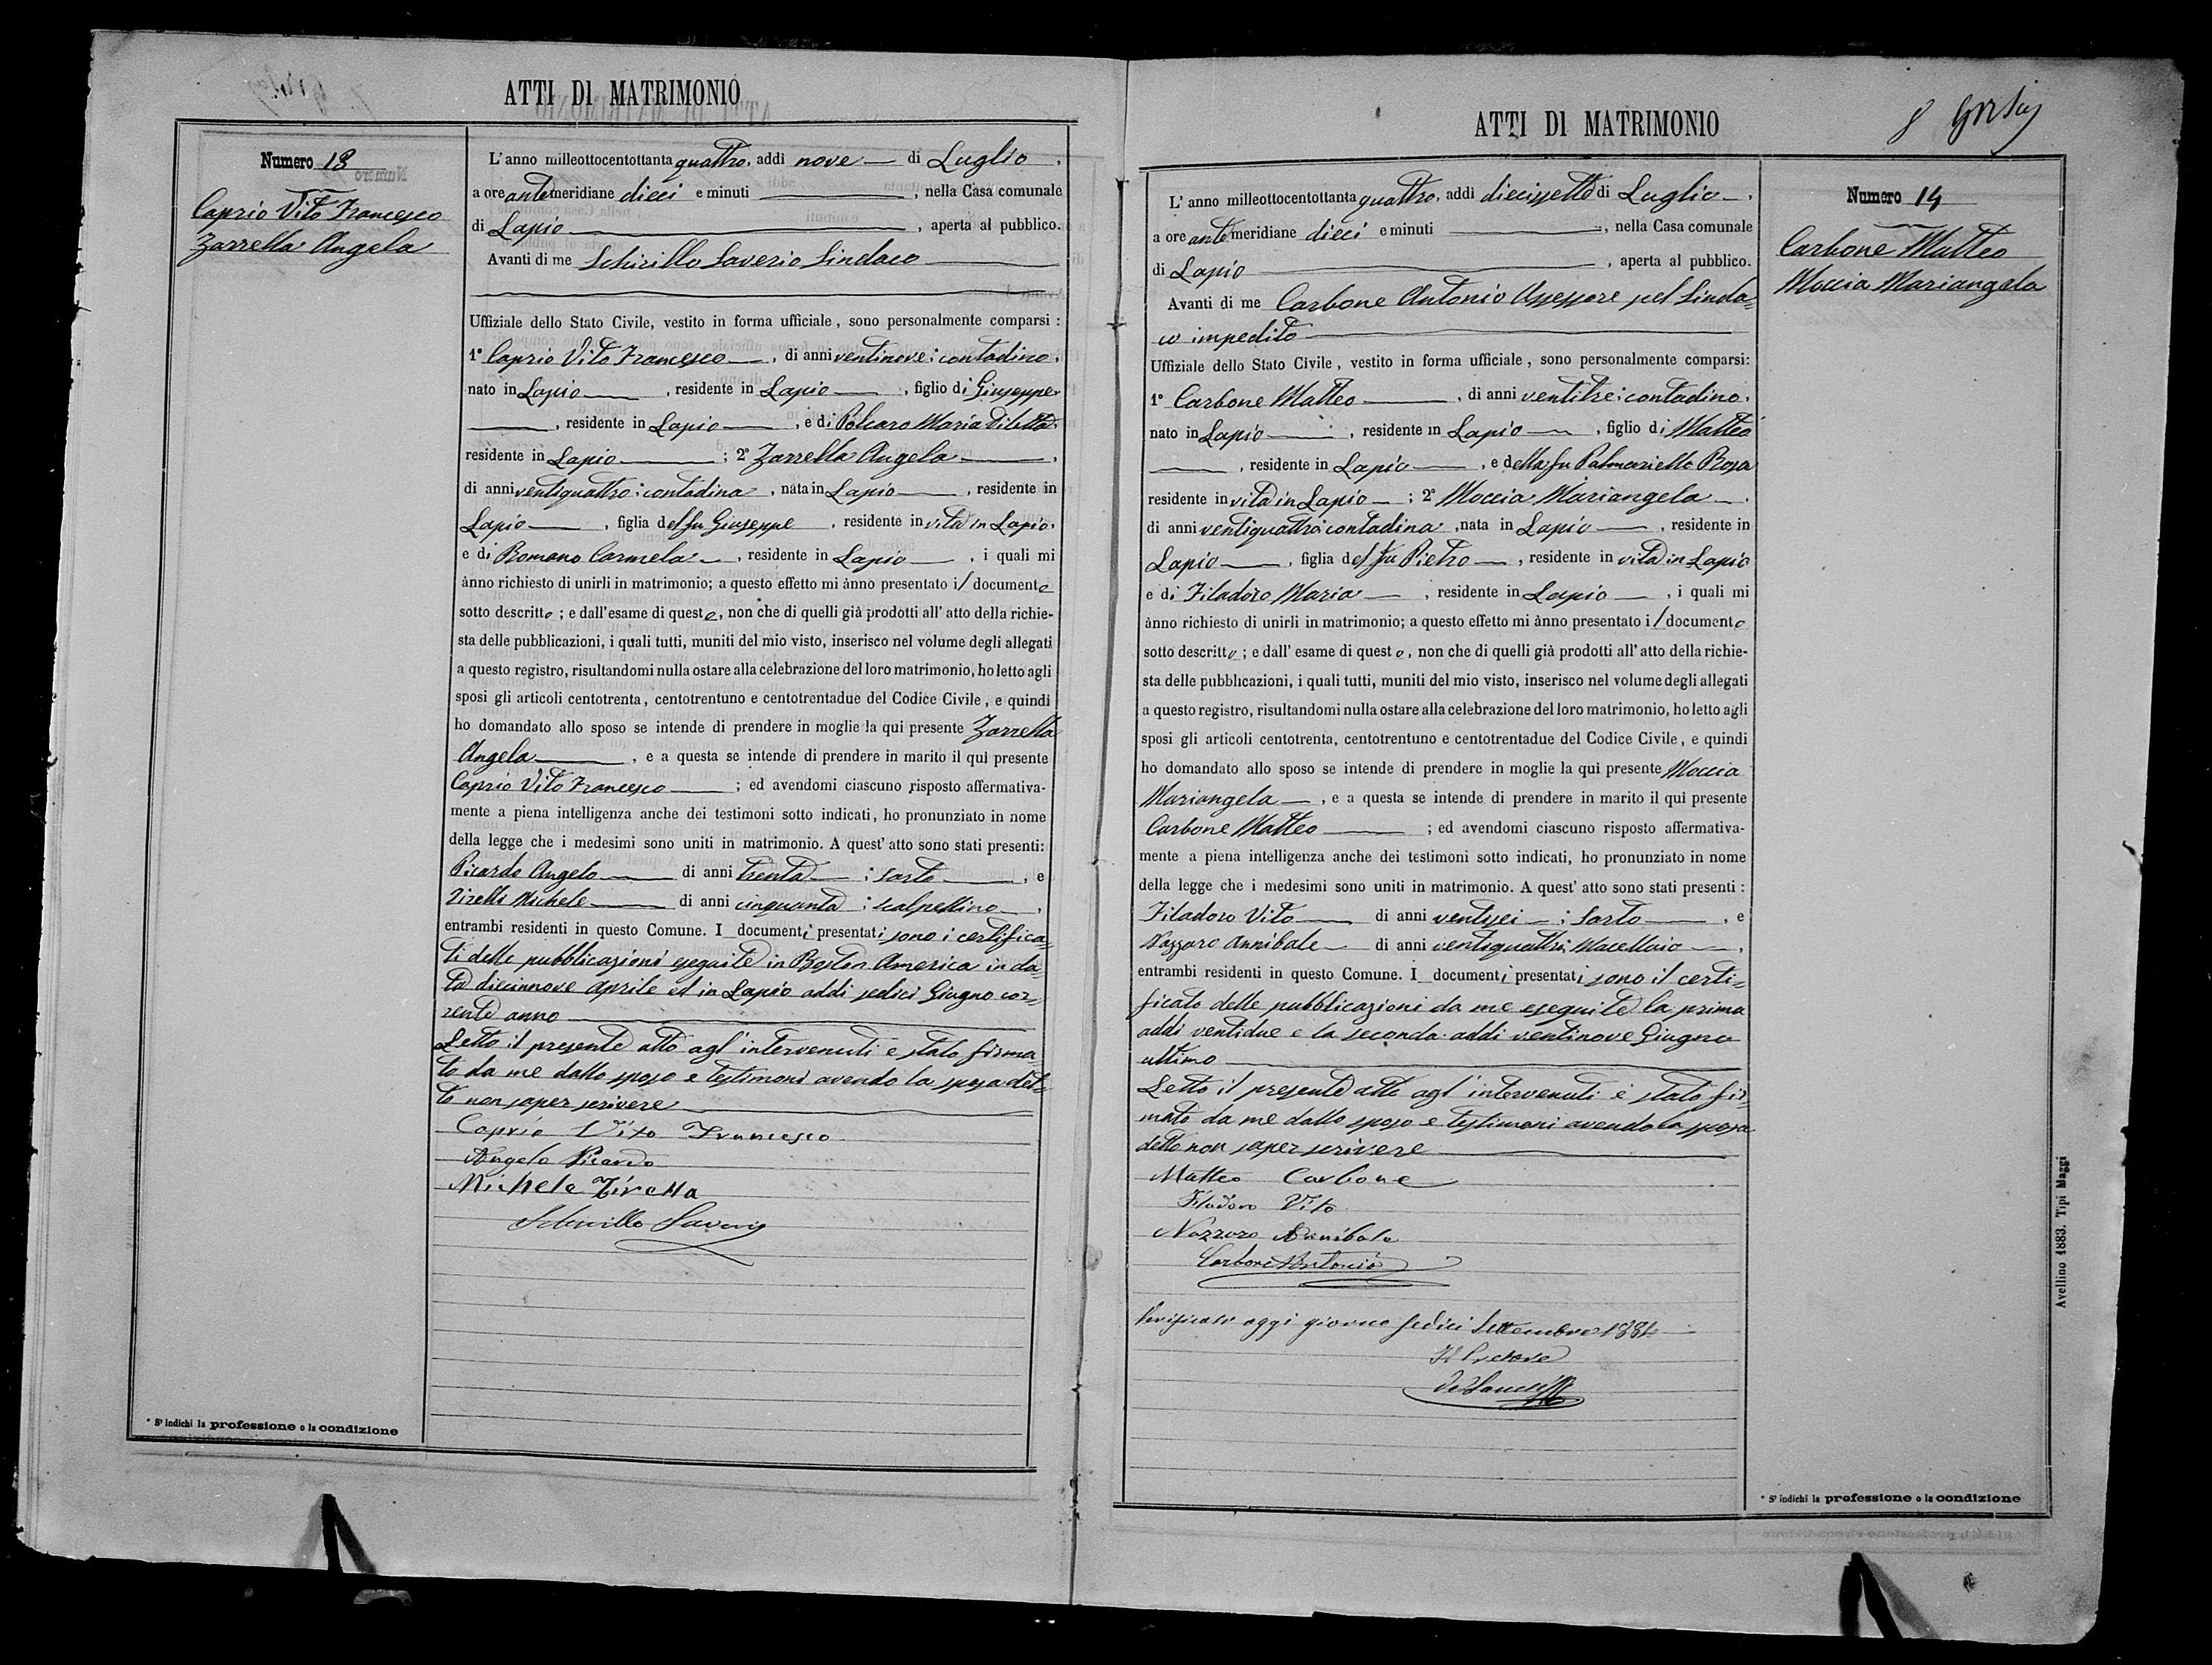 ATTI DI MATRIMONIO
Numero 13
Caprio Vito Francesco
Zarrella Angela
L'anno milleottocentottanta quattro, addì nove di Luglio,
a ore antemeridiane dieci e minuti , nella Casa comunale
di Lapio , aperta al pubblico.
Avanti di me Schirillo Saverio Sindaco
Uffiziale dello Stato Civile, vestito in forma ufficiale, sono personalmente comparsi:
1° Caprio Vito Francesco , di anni ventinove; contadino,
nato in Lapio , residente in Lapio , figlio di Giuseppe
, residente in Lapio , e di Polcaro Maria Diletta,
residente in Lapio ; 2° Zarrella Angela ,
di anni ventiquattro; contadina , nata in Lapio , residente in
Lapio , figlia del fu Giuseppe , residente in vita in Lapio,
e di Romano Carmela , residente in Lapio , i quali mi
ànno richiesto di unirli in matrimonio; a questo effetto mi ànno presentato il documento
sotto descritto; e dall'esame di questo, non che di quelli già prodotti all' atto della richie-
sta delle pubblicazioni, i quali tutti, muniti del mio visto, inserisco nel volume degli allegati
a questo registro, risultandomi nulla ostare alla celebrazione del loro matrimonio, ho letto agli
sposi gli articoli centotrenta, centotrentuno e centotrentadue del Codice Civile, e quindi
ho domandato allo sposo se intende di prendere in moglie la qui presente Zarrella
Angela , e a questa se intende di prendere in marito il qui presente
Caprio Vito Francesco ; ed avendomi ciascuno risposto affermativa-
mente a piena intelligenza anche dei testimoni sotto indicati, ho pronunziato in nome
della legge che i medesimi sono uniti in matrimonio. A quest' atto sono stati presenti:
Picardo Angelo di anni trenta ; sarto , e
Tirella Michele di anni cinquanta ; scalpellino ,
entrambi residenti in questo Comune. I documenti presentati sono i certifica=
ti delle pubblicazioni eseguite in Boston America in da=
ta diecinnove Aprile ed in Lapio addì sedici Giugno cor=
rente anno
Letto il presente atto agl'intervenuti è stato firma=
to da me dallo sposo e testimoni avendo la sposa det=
to non saper scrivere
Caprio Vito Francesco
Angelo Picardo
Michele Tirella
Schirillo Saverio
* S' indichi la professione o la condizione
ATTI DI MATRIMONIO
8
Numero 14
Carbone Matteo
Moccia Mariangela
L' anno milleottocentottanta quattro, addì diecissette di Luglio,
a ore antemeridiane dieci e minuti , nella Casa comunale
di Lapio , aperta al pubblico.
Avanti di me Carbone Antonio Assessore pel Sinda=
co impedito
Uffiziale dello Stato Civile, vestito in forma ufficiale, sono personalmente comparsi:
1° Carbone Matteo , di anni ventitre; contadino,
nato in Lapio , residente in Lapio , figlio di Matteo
, residente in Lapio , e della fu Palmariello Rosa
residente in vita in Lapio ; 2° Moccia Mariangela ,
di anni ventiquattro; contadina , nata in Lapio , residente in
Lapio , figlia del fu Pietro , residente in vita in Lapio
e di Filadoro Maria , residente in Lapio , i quali mi
ànno richiesto di unirli in matrimonio; a questo effetto mi ànno presentato il documento
sotto descritto; e dall' esame di questo, non che di quelli già prodotti all' atto della richie-
sta delle pubblicazioni, i quali tutti, muniti del mio visto, inserisco nel volume degli allegati
a questo registro, risultandomi nulla ostare alla celebrazione del loro matrimonio, ho letto agli
sposi gli articoli centotrenta, centotrentuno e centotrentadue del Codice Civile, e quindi
ho domandato allo sposo se intende di prendere in moglie la qui presente Moccia
Mariangela , e a questa se intende di prendere in marito il qui presente
Carbone Matteo ; ed avendomi ciascuno risposto affermativa-
mente a piena intelligenza anche dei testimoni sotto indicati, ho pronunziato in nome
della legge che i medesimi sono uniti in matrimonio. A quest' atto sono stati presenti:
Filadoro Vito di anni ventisei ; Sarto , e
Nazzaro Annibale di anni ventiquattro; Macellaio ,
entrambi residenti in questo Comune. I documenti presentati sono il certi=
ficato delle pubblicazioni da me eseguite la prima
addì ventidue e la seconda addì ventinove Giugno
ultimo
Letto il presente atto agl'intervenuti è stato fir=
mato da me dallo sposo e testimoni avendo la sposa
detto non saper scrivere
Matteo Carbone
Filadoro Vito
Nazzaro Annibale
Carbone Antonio
Verificato oggi giorno sedici Settembre 1884
Il Pretore
* S' indichi la professione o la condizione
Avellino 1883. Tipi Maggi